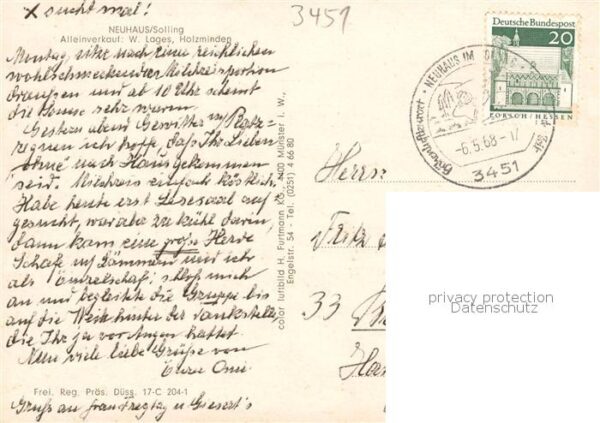 x sucht mal!
3451
NEUHAUS/Solling
Alleinverkauf: W. Lages, Holzminden
Montag sitze nach einer reichlichen
wohlschmeckenden Milchreisportion
draußen und ab 10 Uhr scheint
die Sonne sehr warm.
Gestern abend Gewitter m/ Platz-
regnen ich hoffe, daß Ihr Lieben
"ohne" nach Haus gekommen
seid. Milchreis einfach köstlich.
Habe heute erst Lesesaal auf-
gesucht, war aber zu kühl darin,
dann kam eine große Herde
Schafe m/ Lämmern und ich
als Einzelschaf schloß mich
an und begleitete die Gruppe bis
auf die Weide hinter der Tankstelle,
die Ihr ja vor Augen hattet.
Nun viele liebe Grüße von
Eurer Omi
Frei. Reg. Präs. Düss. 17-C 204-1
Gruß an Frau Freytag u
color luftbild H. Furtmann KG, 4400 Münster i. W.,
Engelstr. 54 - Tel. (0251) 4 66 80
Deutsche Bundespost
20
LORSCH/HESSEN
NEUHAUS IM
-6.5.68-17
3451
Herrn
Fritz
33
privacy protection
Datenschutz